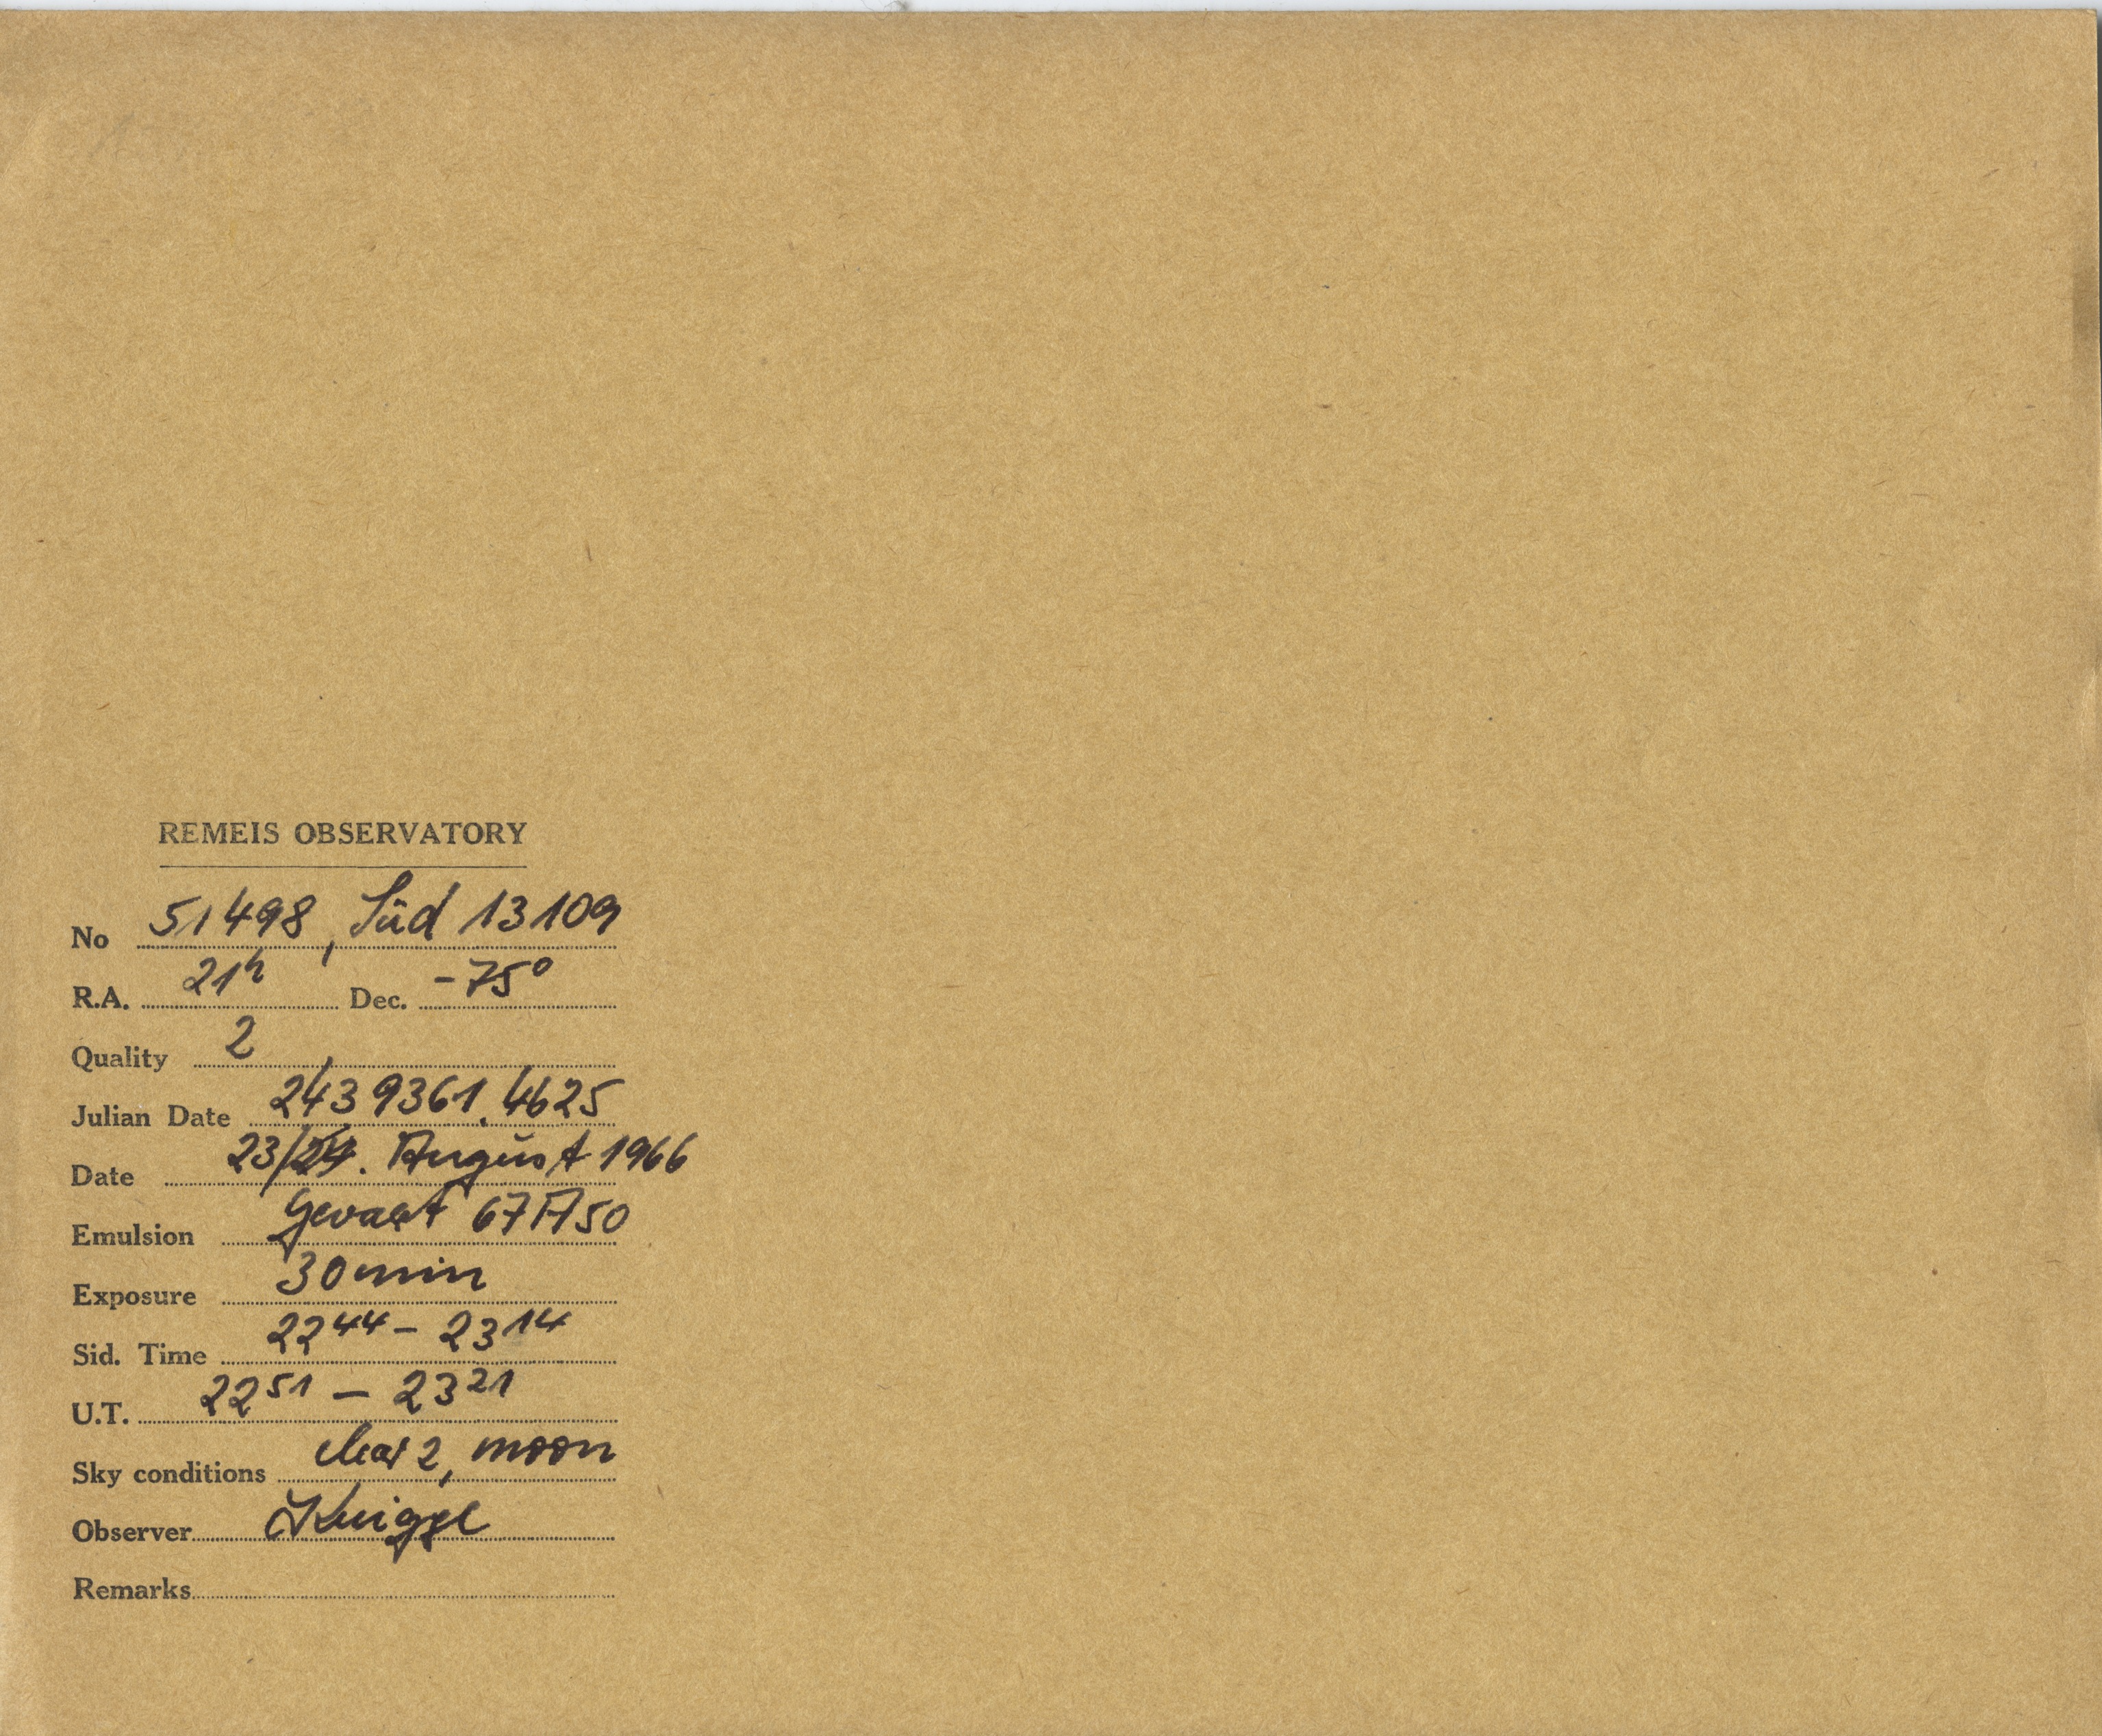 REMEIS OBSERVATORY
No 51498, Süd 13109
R.A. 21h Dec. -75°
Quality 2
Julian Date 2439361.4625
Date 23/24. August 1966
Emulsion Gevaert 67A50
Exposure 30min
Sid. Time 22 44 - 23 14
U.T. 22 51 - 23 21
Sky conditions clear 2, moon
Observer Knigge
Remarks